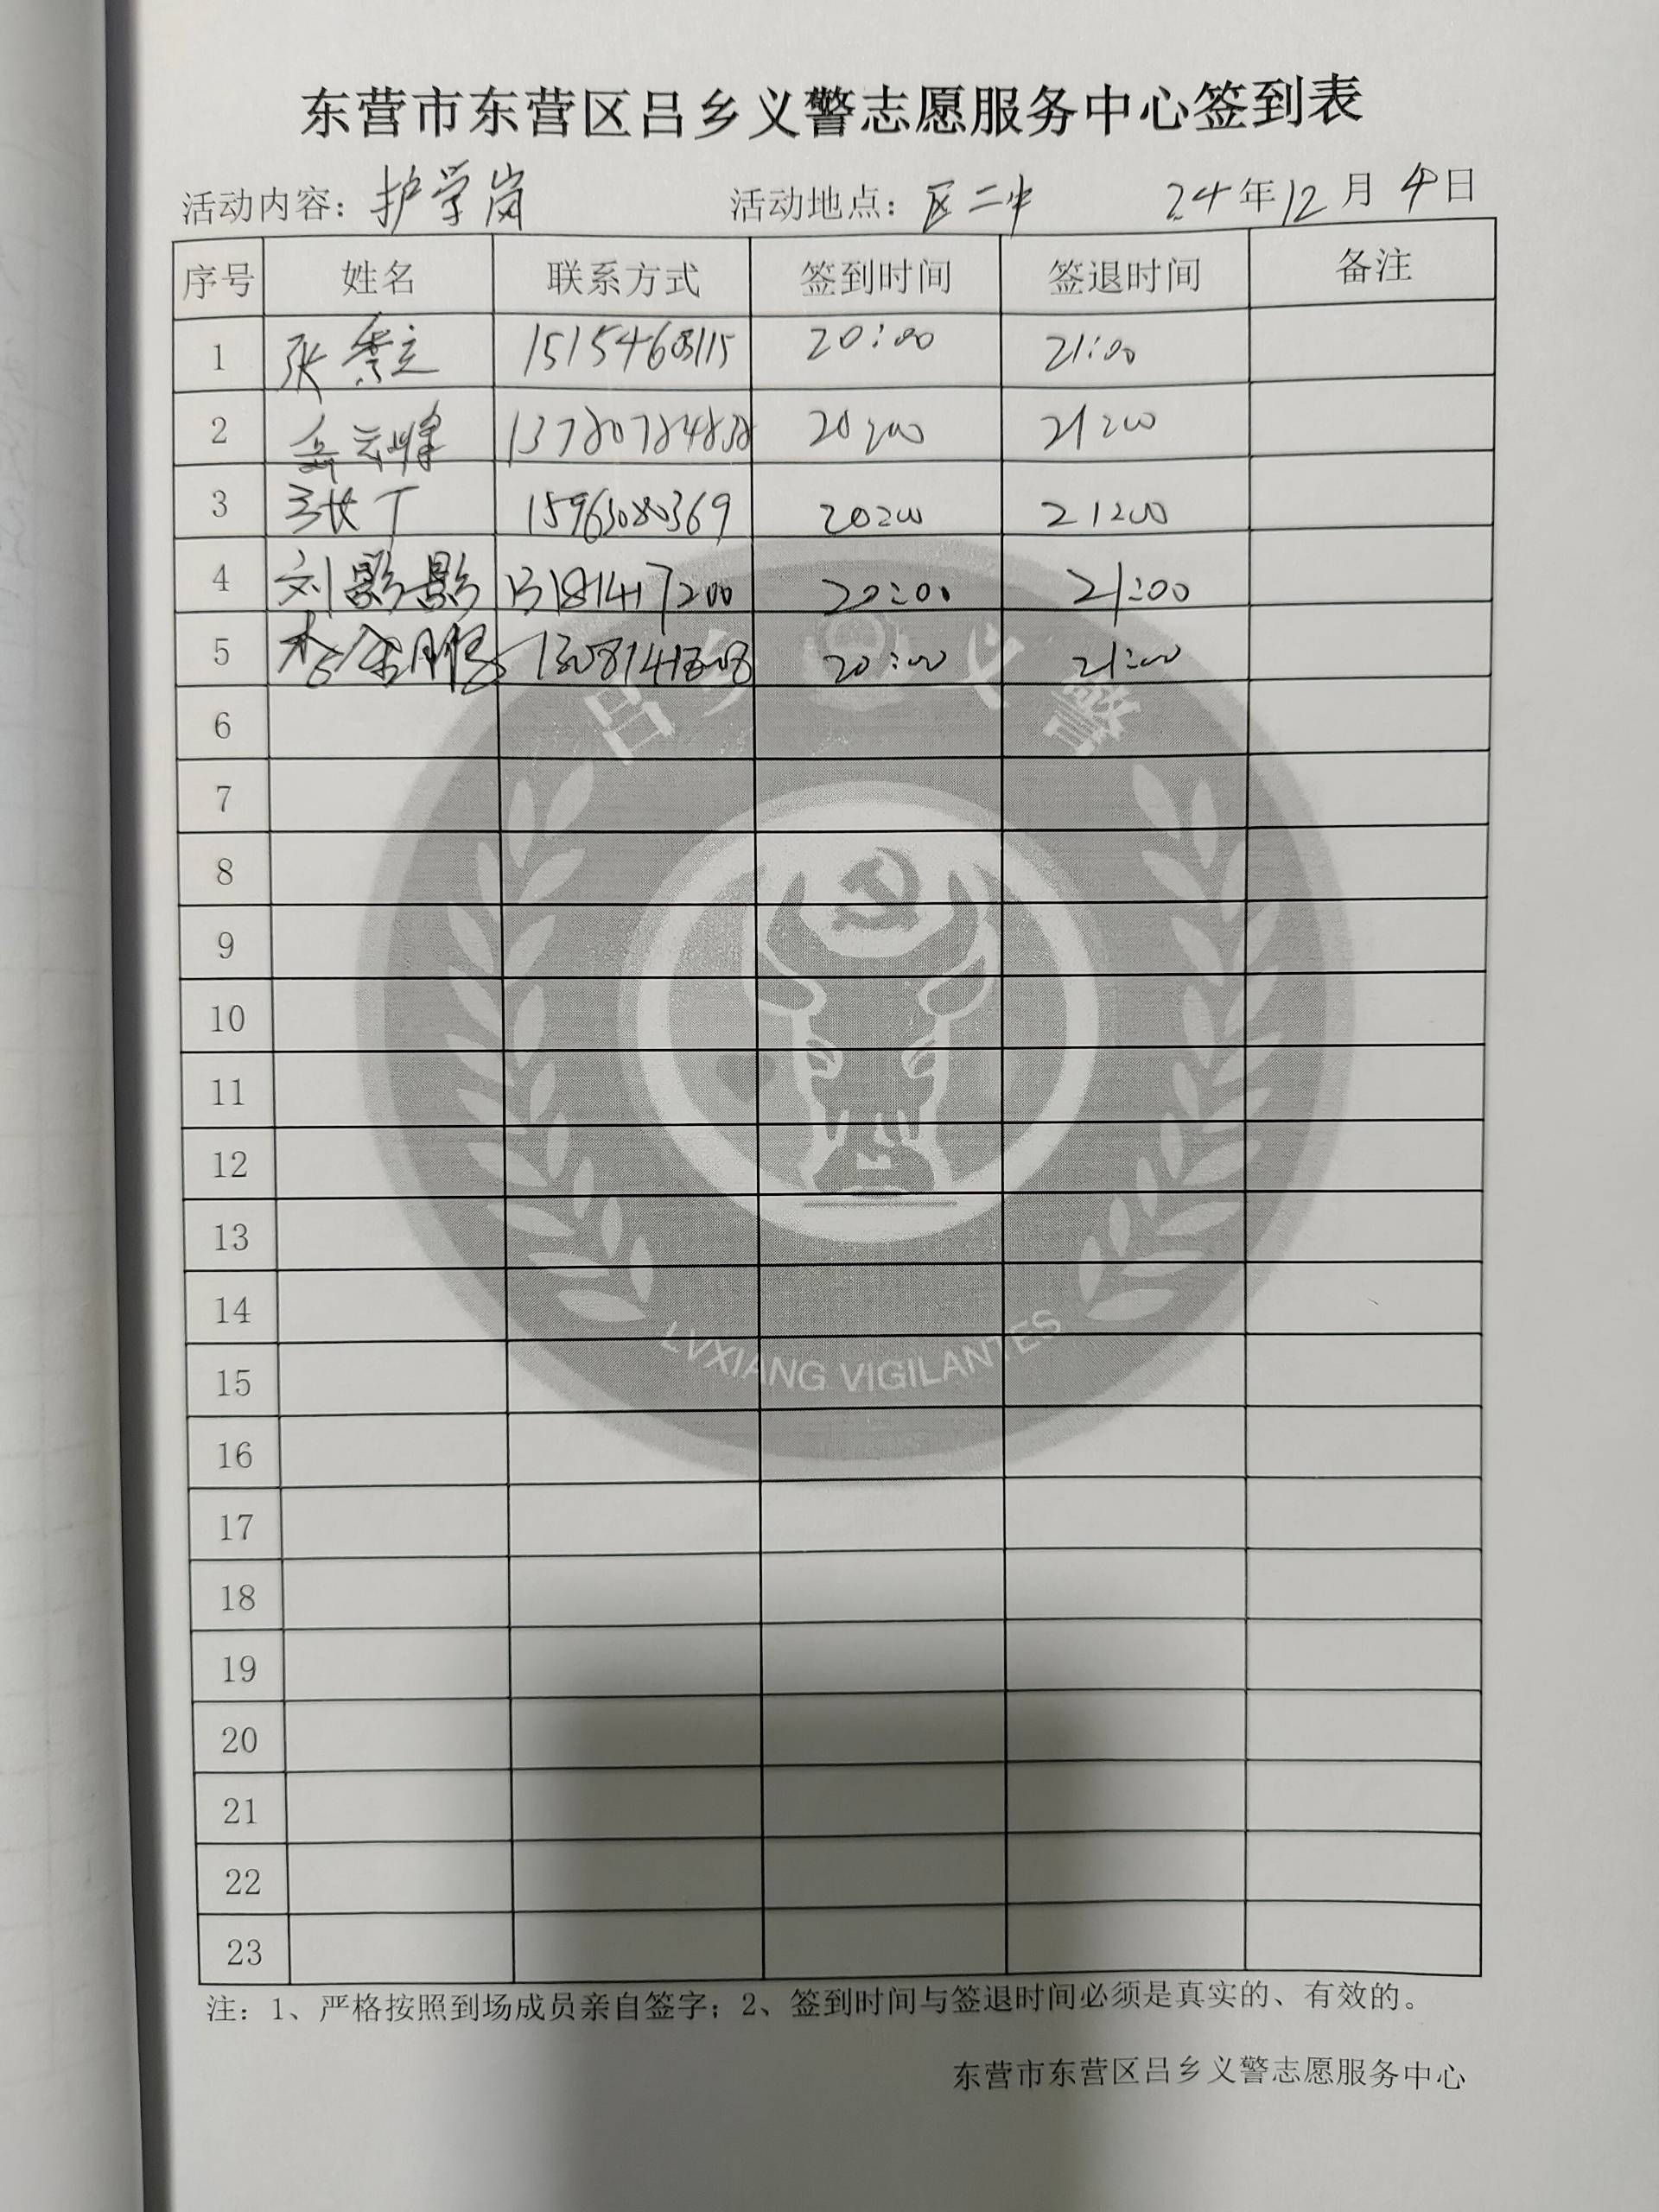 东营市东营区吕乡义警志愿服务中心签到表
活动内容：护学岗 活动地点：区二中 24年12月4日
序号 姓名 联系方式 签到时间 签退时间 备注
1 张 20:00 21:00
2 岳云峰 20:00 21:00
3 张丁 15963080369 20:00 21:00
4 刘影影 20:00 21:00
5 20:00 21:00
6
7
8
9
10
11
12
13
14
15
16
17
18
19
20
21
22
23
吕乡义警
LVXIANG VIGILANTES
注：1、严格按照到场成员亲自签字；2、签到时间与签退时间必须是真实的、有效的。
东营市东营区吕乡义警志愿服务中心